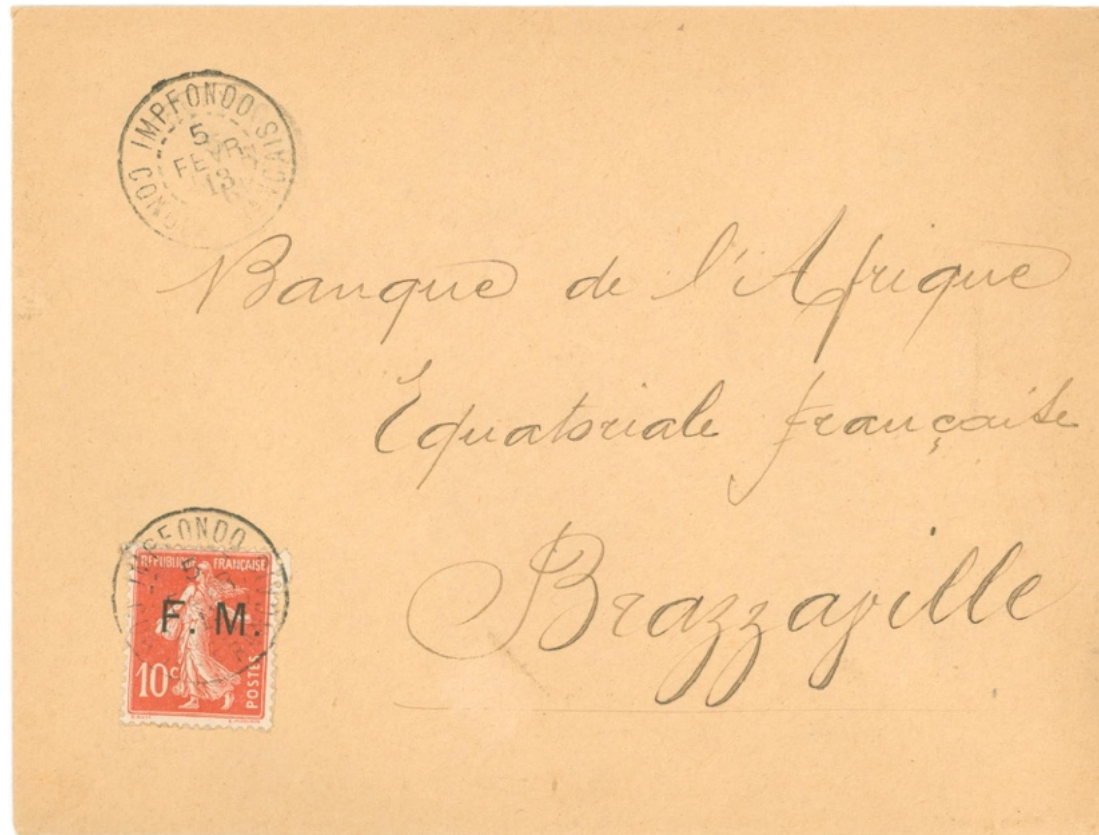 CONGO IMPFONDO FRANÇAIS
5
FEVR
13
Banque de l'Afrique
Equatoriale française
Brazzaville
IMPFONDO
5
REPUBLIQUE FRANÇAISE
F. M.
10c
POSTES